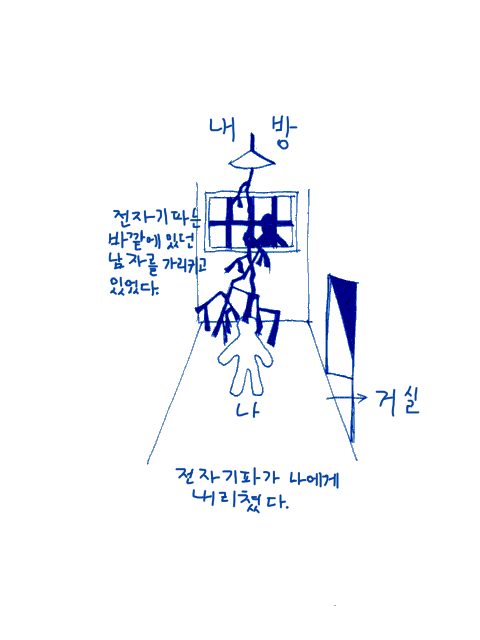 내 방
전자기파는
바깥에 있던
남자를 가리키고
있었다.
나
거실
전자기파가 나에게
내리쳤다.